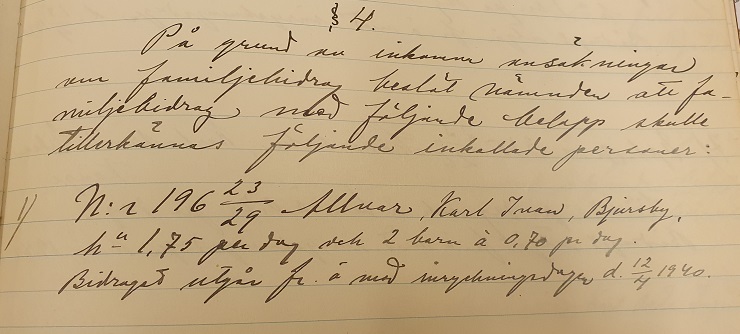 § 4.
På grund av inkomna ansökningar
om familjebidrag beslöt nämnden att fa-
miljebidrag med följande belopp skulle
tillerkännas följande inkallade personer:
1) N:r 196 23/29 Allvar, Karl Ivan, Bjursby,
h-u 1,75 per dag och 2 barn à 0,70 pr dag.
Bidraget utgår fr. å med inryckningsdagen d. 12/4 1940.